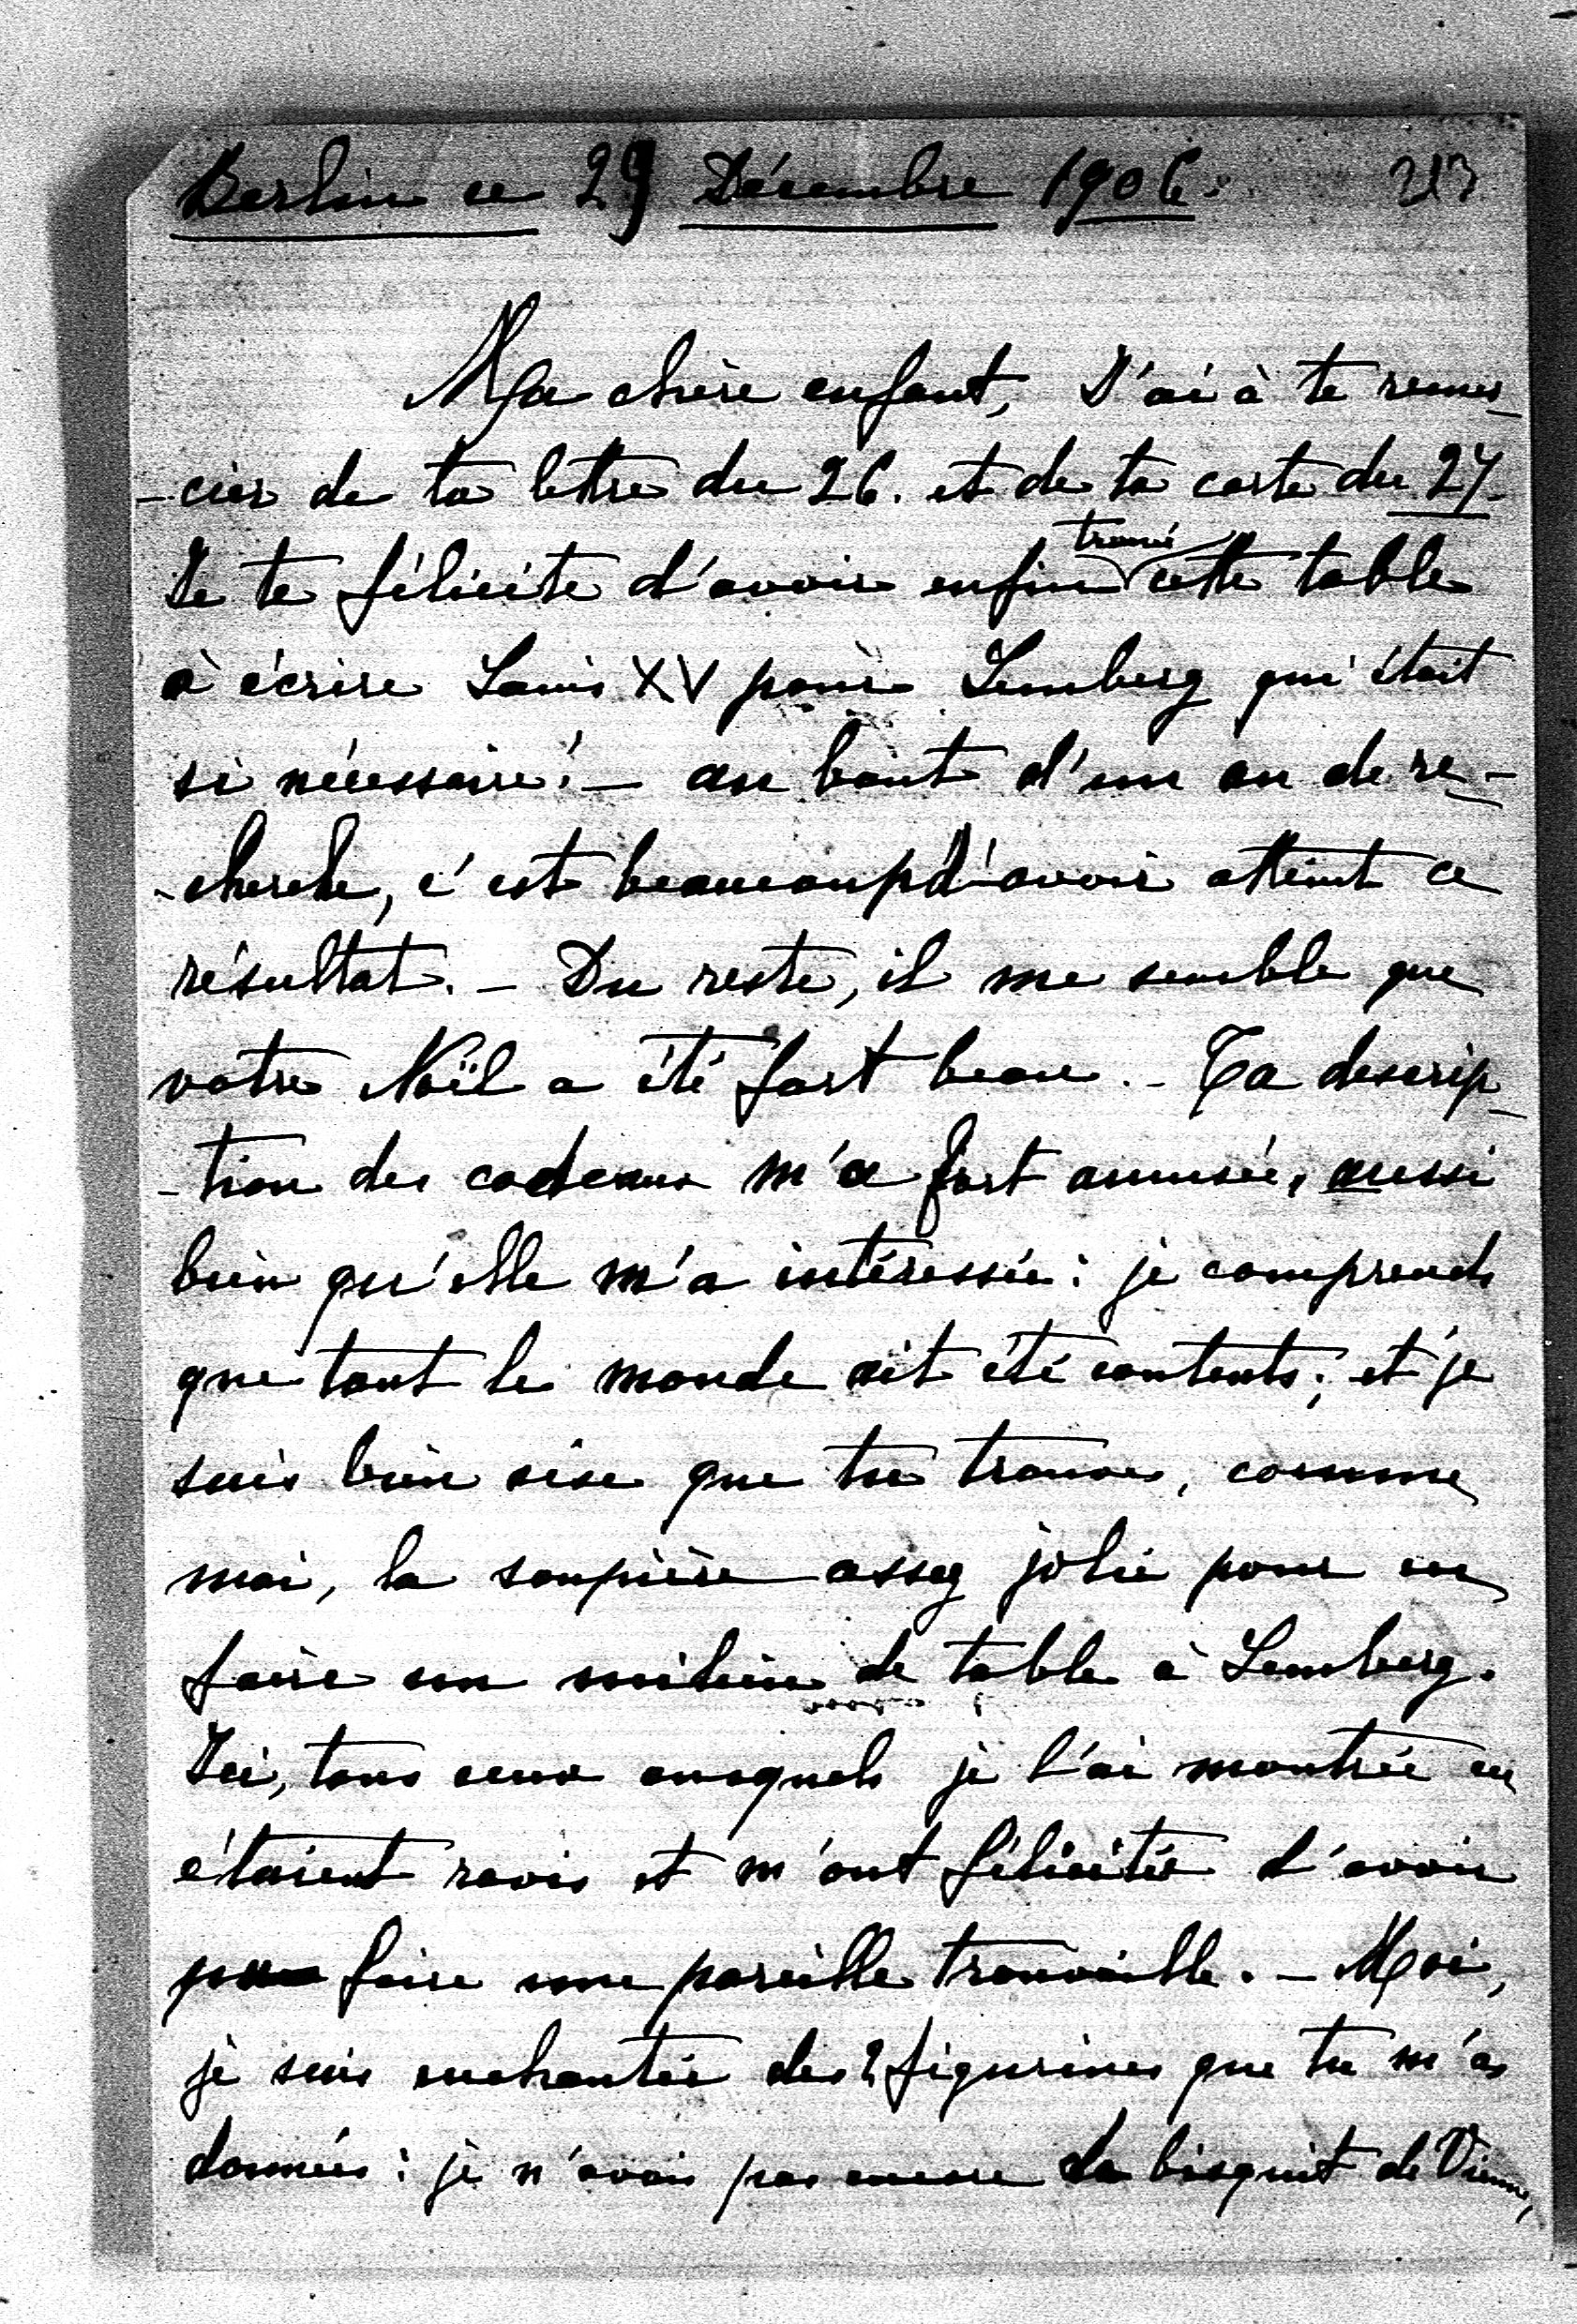 Berlin ce 29 Décembre 1906. 313
Ma chère enfant, J'ai à te remer-
-cier de ta lettre du 26. et de ta carte du 27.
Je te félicite d'avoir enfin trouvé cette table
à écrire Louis XV pour Lemberg qui était
si nécessaire! — au bout d'un an de re-
-cherche, c'est beaucoup d'avoir atteint ce
résultat. — Du reste, il me semble que
votre Noël a été fort beau. — Ta descrip-
-tion des cadeaux m'a fort amusée, aussi
bien qu'elle m'a intéressée: je comprends
que tout le monde ait été contents; et je
suis bien aise que tu trouves, comme
moi, la soupière assez jolie pour en
faire un milieu de table à Lemberg.
Ici, tous ceux auxquels je l'ai montrée en
étaient ravis et m'ont félicitée d'avoir
pu faire une pareille trouvaille. — Moi,
je suis enchantée des 2 figurines que tu m'as
données: je n'avais pas encore de bisquit de Vienne,